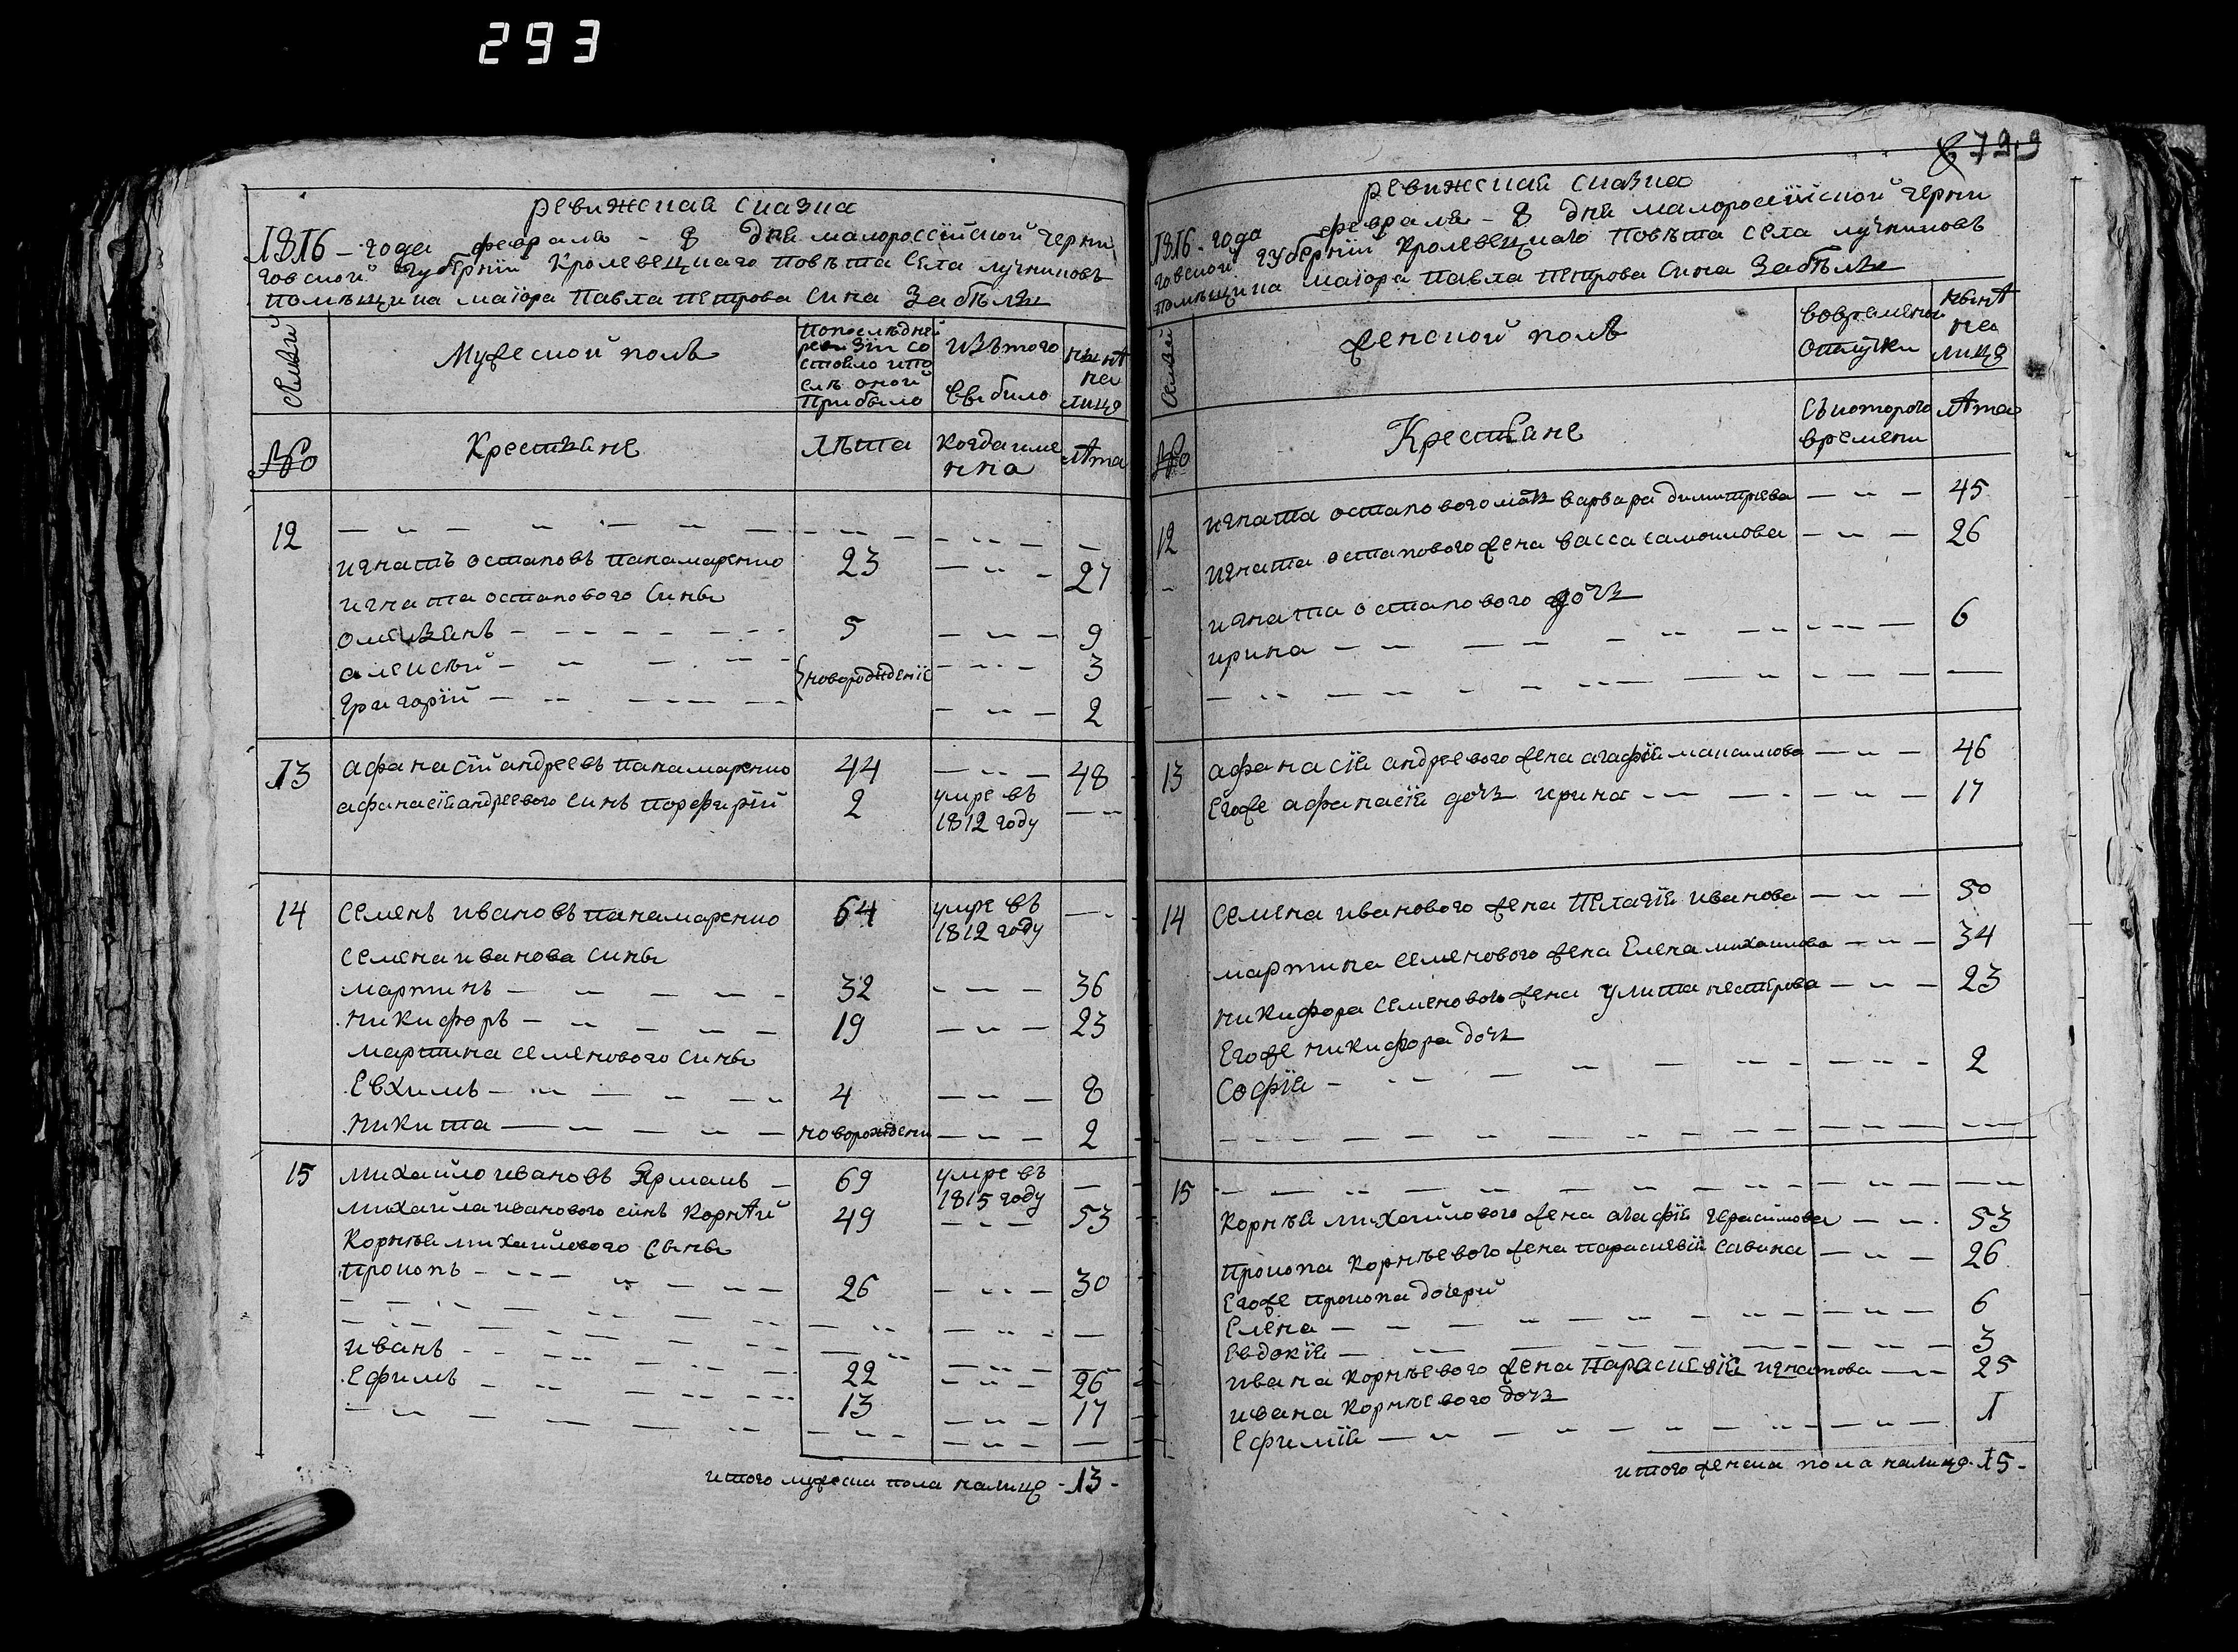 293
ревижская сказка
1816 - года февраля - 8 дня малороссійской черни
говской губерніи Кролевецкаго повѣта села лучниковъ
помѣщика маіора Павла петрова сина Забѣлы
Семьи
Мужеской полъ
Попослѣдней
ревизіи со
стояло ипо
слѣ оной
прибыло
Изътого
выбило
нынѣ
на
лицо
№
Крестьяне
Лѣта
Когдаиме
нно
лѣта
12
игнатъ остаповъ панамаренко 23 27
игната остапового сины
омельянъ 5 9
алексѣй новорожденіе 3
григорій 2
13 афанасій андреевъ панамаренко 44 48
афанасія андреевого синъ порфирій 2 умре въ
1812 году
14 семенъ ивановъ панамаренко 64 умре въ
1812 году
семена иванова сины
мартинъ 32 36
никифоръ 19 23
мартина семенового сины
Евхимъ 4 8
никита новорожденн 2
15 михайло ивановъ Ярмакъ 69 умре въ
1815 году
михайла иванового синъ корнѣй 49 53
корнѣя михайлового сыны
прокопъ 26 30
иванъ 22 26
ефимъ 13 17
итого мужеска пола налицо - 13 -
ревижская сказка
1816 - года февраля - 8 дня малоросійской черни
говской губерніи кролевецкаго повѣта села лучниковъ
помѣщика маіора павла петрова сина Забѣлы
Семьи
женской полъ
вовременной
отлучки
нынѣ
на
лицо
№
Крестьяне
Съкоторого
времени
лѣта
12 игната остапового мать варвара димитрева 45
игната остапового жена васса самоилова 26
игната остапового дочь
ирина 6
13 афанасія андреевого жена агафія максимова 46
Егоже афанасія дочь ирина 17
14 семена иванового жена Пелагія иванова 50
мартина семенового жена Елена михаилова 34
никифора семенового жена улита нестерова 23
Егоже никифора дочь
софія 2
15
корнѣя михайлового жена агафія герасимова 53
прокопа корнѣевого жена параскевія савина 26
Егоже прокопа дочери
елена 6
евдокія 3
ивана корнѣевого жена параскевія игнатова 25
ивана корнѣевого дочь
ефимія 1
итого женска пола налицо - 15 -